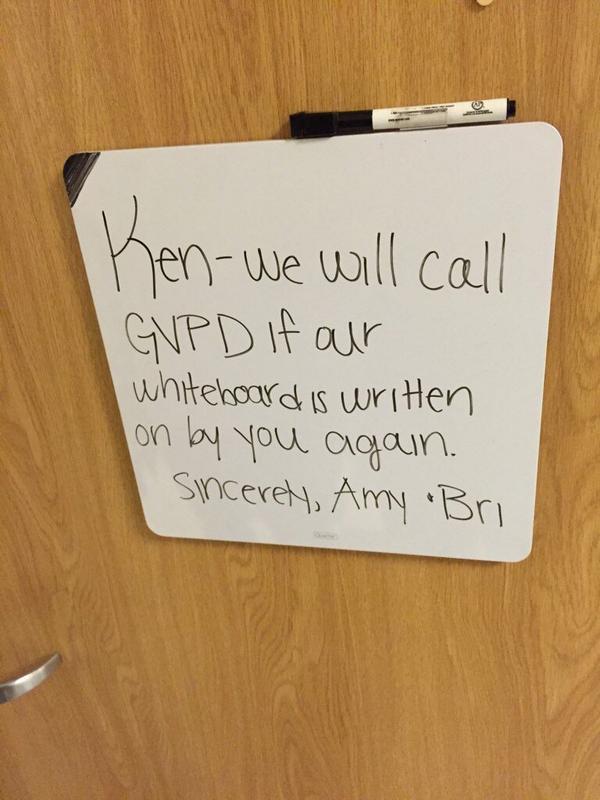 Ken-we will call
GVPD if our
whiteboard is written
on by you again.
Sincerely, Amy • Bri